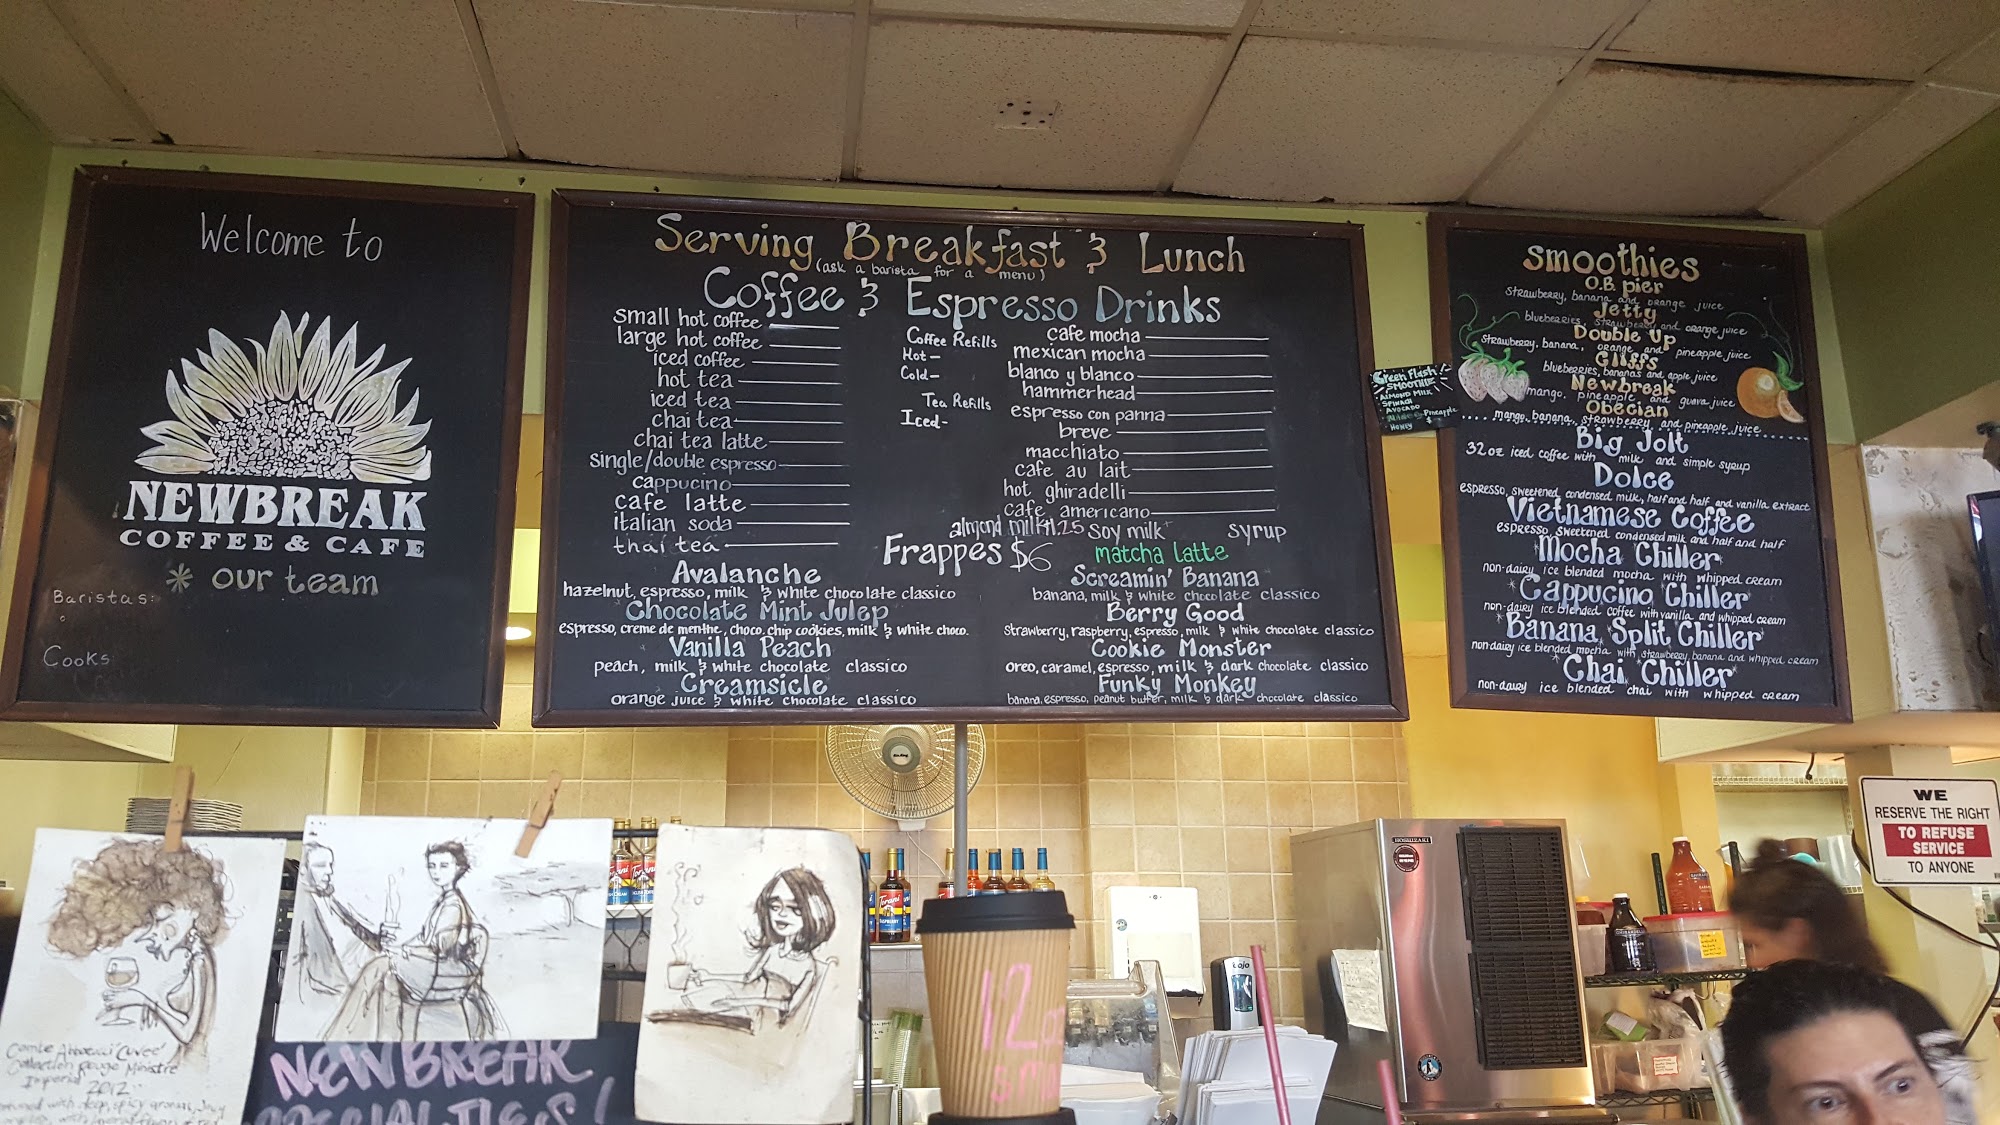 Welcome to
NEWBREAK
COFFEE & CAFE
* our team
Baristas:
Cooks
Serving Breakfast & Lunch
(ask a barista for a menu)
Coffee & Espresso Drinks
small hot coffee
large hot coffee
iced coffee
hot tea
iced tea
chai tea
chai tea latte
single/double espresso
cappucino
cafe latte
italian soda
thai tea
Coffee Refills
Hot-
Cold-
Tea Refills
Iced-
cafe mocha
mexican mocha
blanco y blanco
hammerhead
espresso con panna
breve
macchiato
cafe au lait
hot ghiradelli
cafe americano
almond milk+1.25 Soy milk+ syrup
Frappes $6
matcha latte
Avalanche
hazelnut, espresso, milk & white chocolate classico
Chocolate Mint Julep
espresso, creme de menthe, choco. chip cookies, milk & white choco.
Vanilla Peach
peach, milk & white chocolate classico
Creamsicle
orange juice & white chocolate classico
Screamin' Banana
banana, milk & white chocolate classico
Berry Good
Strawberry, raspberry, espresso, milk & white chocolate classico
Cookie Monster
oreo, caramel, espresso, milk & dark chocolate classico
Funky Monkey
banana, espresso, peanut butter, milk & dark chocolate classico
Green Flash
SMOOTHIE
ALMOND MILK
SPINACH
AVOCADO
Pineapple
Honey
smoothies
O.B. pier
strawberry, banana and orange juice
Jetty
blueberries, strawberry and orange juice
Double Up
strawberry, banana, orange and pineapple juice
Cliffs
blueberries, bananas and apple juice
Newbreak
mango, pineapple and guava juice
Obecian
mango, banana, strawberry and pineapple juice
Big Jolt
32 oz iced coffee with milk and simple syrup
Dolce
espresso, sweetened condensed milk, half and half and vanilla extract
Vietnamese Coffee
espresso, sweetened condensed milk and half and half
Mocha Chiller
non-dairy ice blended mocha with whipped cream
Cappucino Chiller
non-dairy ice blended coffee with vanilla and whipped cream
Banana Split Chiller
non-dairy ice blended mocha with strawberry, banana and whipped cream
Chai Chiller
non-dairy ice blended chai with whipped cream
WE
RESERVE THE RIGHT
TO REFUSE
SERVICE
TO ANYONE
HOSHIZAKI
Torani
12 oz
Collection Rouge Ministre
Imperial
2012
NEWBREAK
SPECIALTIES!